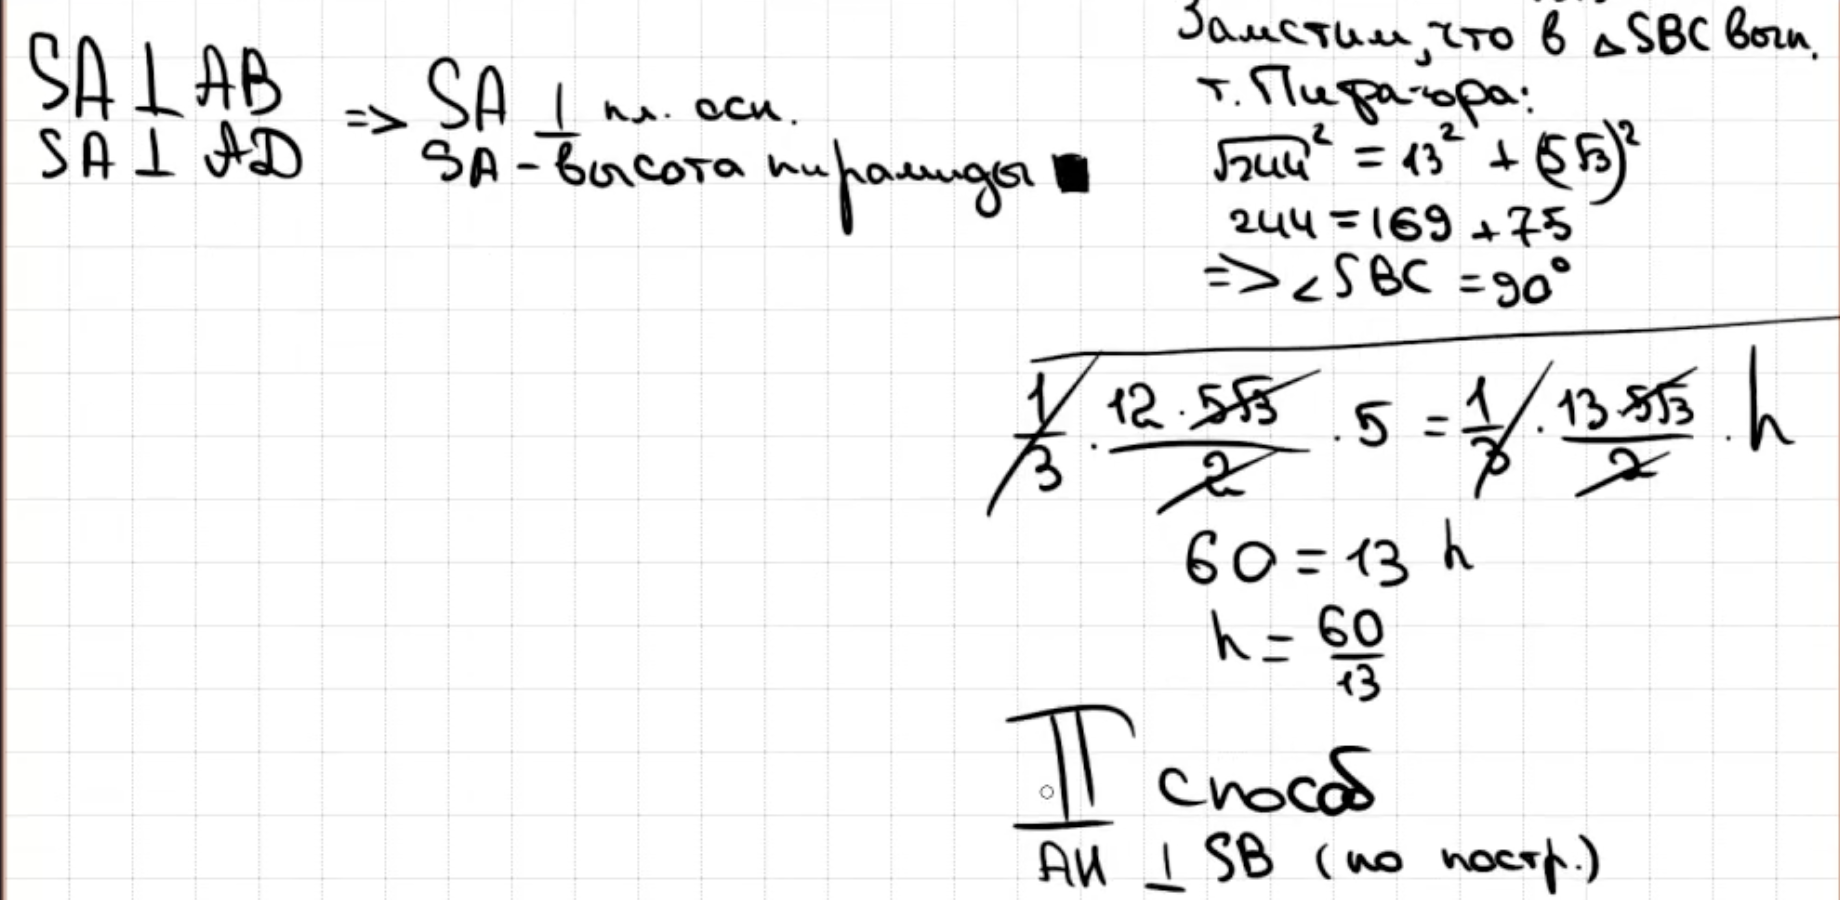 SA ⊥ AB
SA ⊥ AD
=> SA ⊥ пл. осн.
SA - высота пирамиды
Заметим, что в △SBC вып.
т. Пифагора:
√244² = 13² + (5√3)²
244 = 169 + 75
=> ∠SBC = 90°
1/3 · 12·5√3/2 · 5 = 1/3 · 13·5√3/2 · h
60 = 13 h
h = 60/13
II способ
AH ⊥ SB (по постр.)